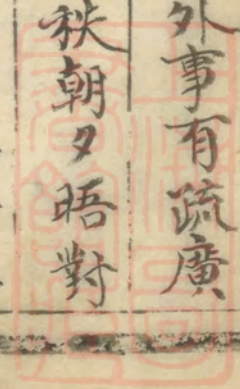 外事有疏廣
秩朝夕晤對